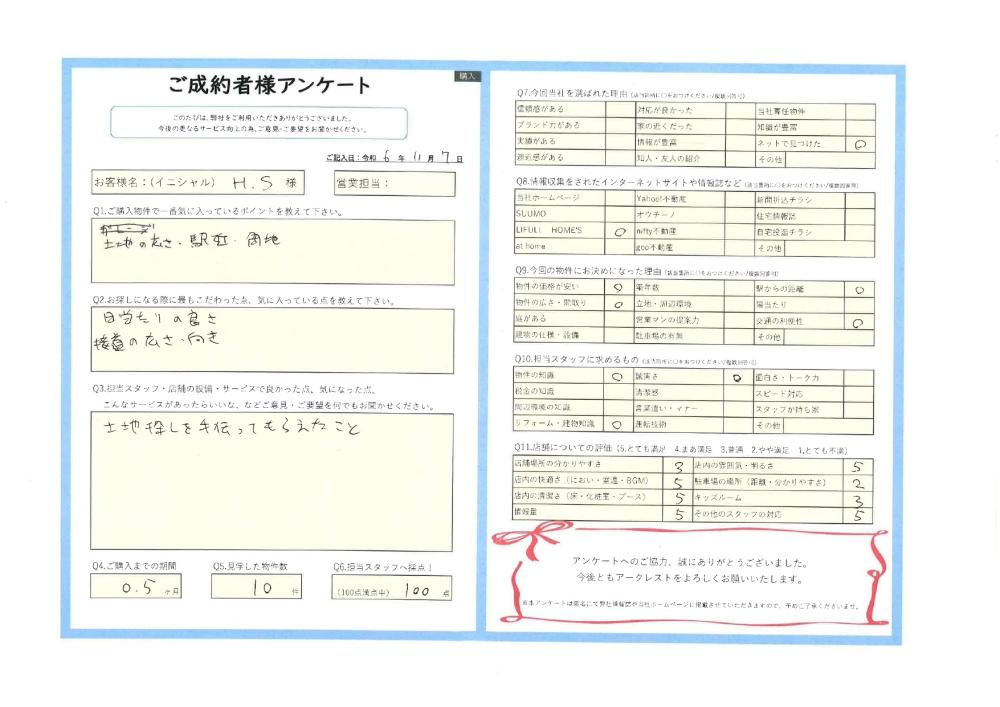 購入
ご成約者様アンケート
このたびは、弊社をご利用いただきありがとうございました。
今後の更なるサービス向上の為、ご意見・ご要望をお聞かせください。
ご記入日：令和 6 年 11 月 7 日
お客様名：（イニシャル） H.S 様
営業担当：
Q1.ご購入物件で一番気に入っているポイントを教えて下さい。
土地の広さ・駅近・角地
Q2.お探しになる際に最もこだわった点、気に入っている点を教えて下さい。
日当たりの良さ
接道の広さ・向き
Q3.担当スタッフ・店舗の設備・サービスで良かった点、気になった点、
こんなサービスがあったらいいな、などご意見・ご要望を何でもお聞かせください。
土地探しを手伝ってもらえたこと
Q4.ご購入までの期間
0.5 ヶ月
Q5.見学した物件数
10 件
Q6.担当スタッフへ採点！
（100点満点中） 100 点
Q7.今回当社を選ばれた理由（該当箇所に〇をおつけください/複数回答可）
信頼感がある 対応が良かった 当社専任物件
ブランド力がある 家の近くだった 知識が豊富
実績がある 情報が豊富 ネットで見つけた ○
親近感がある 知人・友人の紹介 その他
Q8.情報収集をされたインターネットサイトや情報誌など（該当箇所に〇をおつけください/複数回答可）
当社ホームページ Yahoo!不動産 新聞折込チラシ
SUUMO オウチーノ 住宅情報誌
LIFULL HOME'S ○ nifty不動産 自宅投函チラシ
at home goo不動産 その他
Q9.今回の物件にお決めになった理由（該当箇所に〇をおつけください/複数回答可）
物件の価格が安い ○ 築年数 駅からの距離 ○
物件の広さ・間取り ○ 立地・周辺環境 陽当たり
庭がある 営業マンの提案力 交通の利便性 ○
建物の仕様・設備 駐車場の有無 その他
Q10.担当スタッフに求めるもの（該当箇所に〇をおつけください/複数回答可）
物件の知識 ○ 誠実さ ○ 面白さ・トーク力
税金の知識 清潔感 スピード対応
周辺環境の知識 言葉遣い・マナー スタッフが持ち家
リフォーム・建物知識 ○ 運転技術 その他
Q11.店舗についての評価（5.とても満足 4.まあ満足 3.普通 2.やや満足 1.とても不満）
店舗場所の分かりやすさ 3 店内の雰囲気・明るさ 5
店内の快適さ（におい・室温・BGM） 5 駐車場の場所（距離・分かりやすさ） 2
店内の清潔さ（床・化粧室・ブース） 5 キッズルーム 3
情報量 5 その他のスタッフの対応 5
アンケートへのご協力、誠にありがとうございました。
今後ともアークレストをよろしくお願いいたします。
※本アンケートは匿名にて弊社情報誌や当社ホームページに掲載させていただきますので、予めご了承くださいませ。